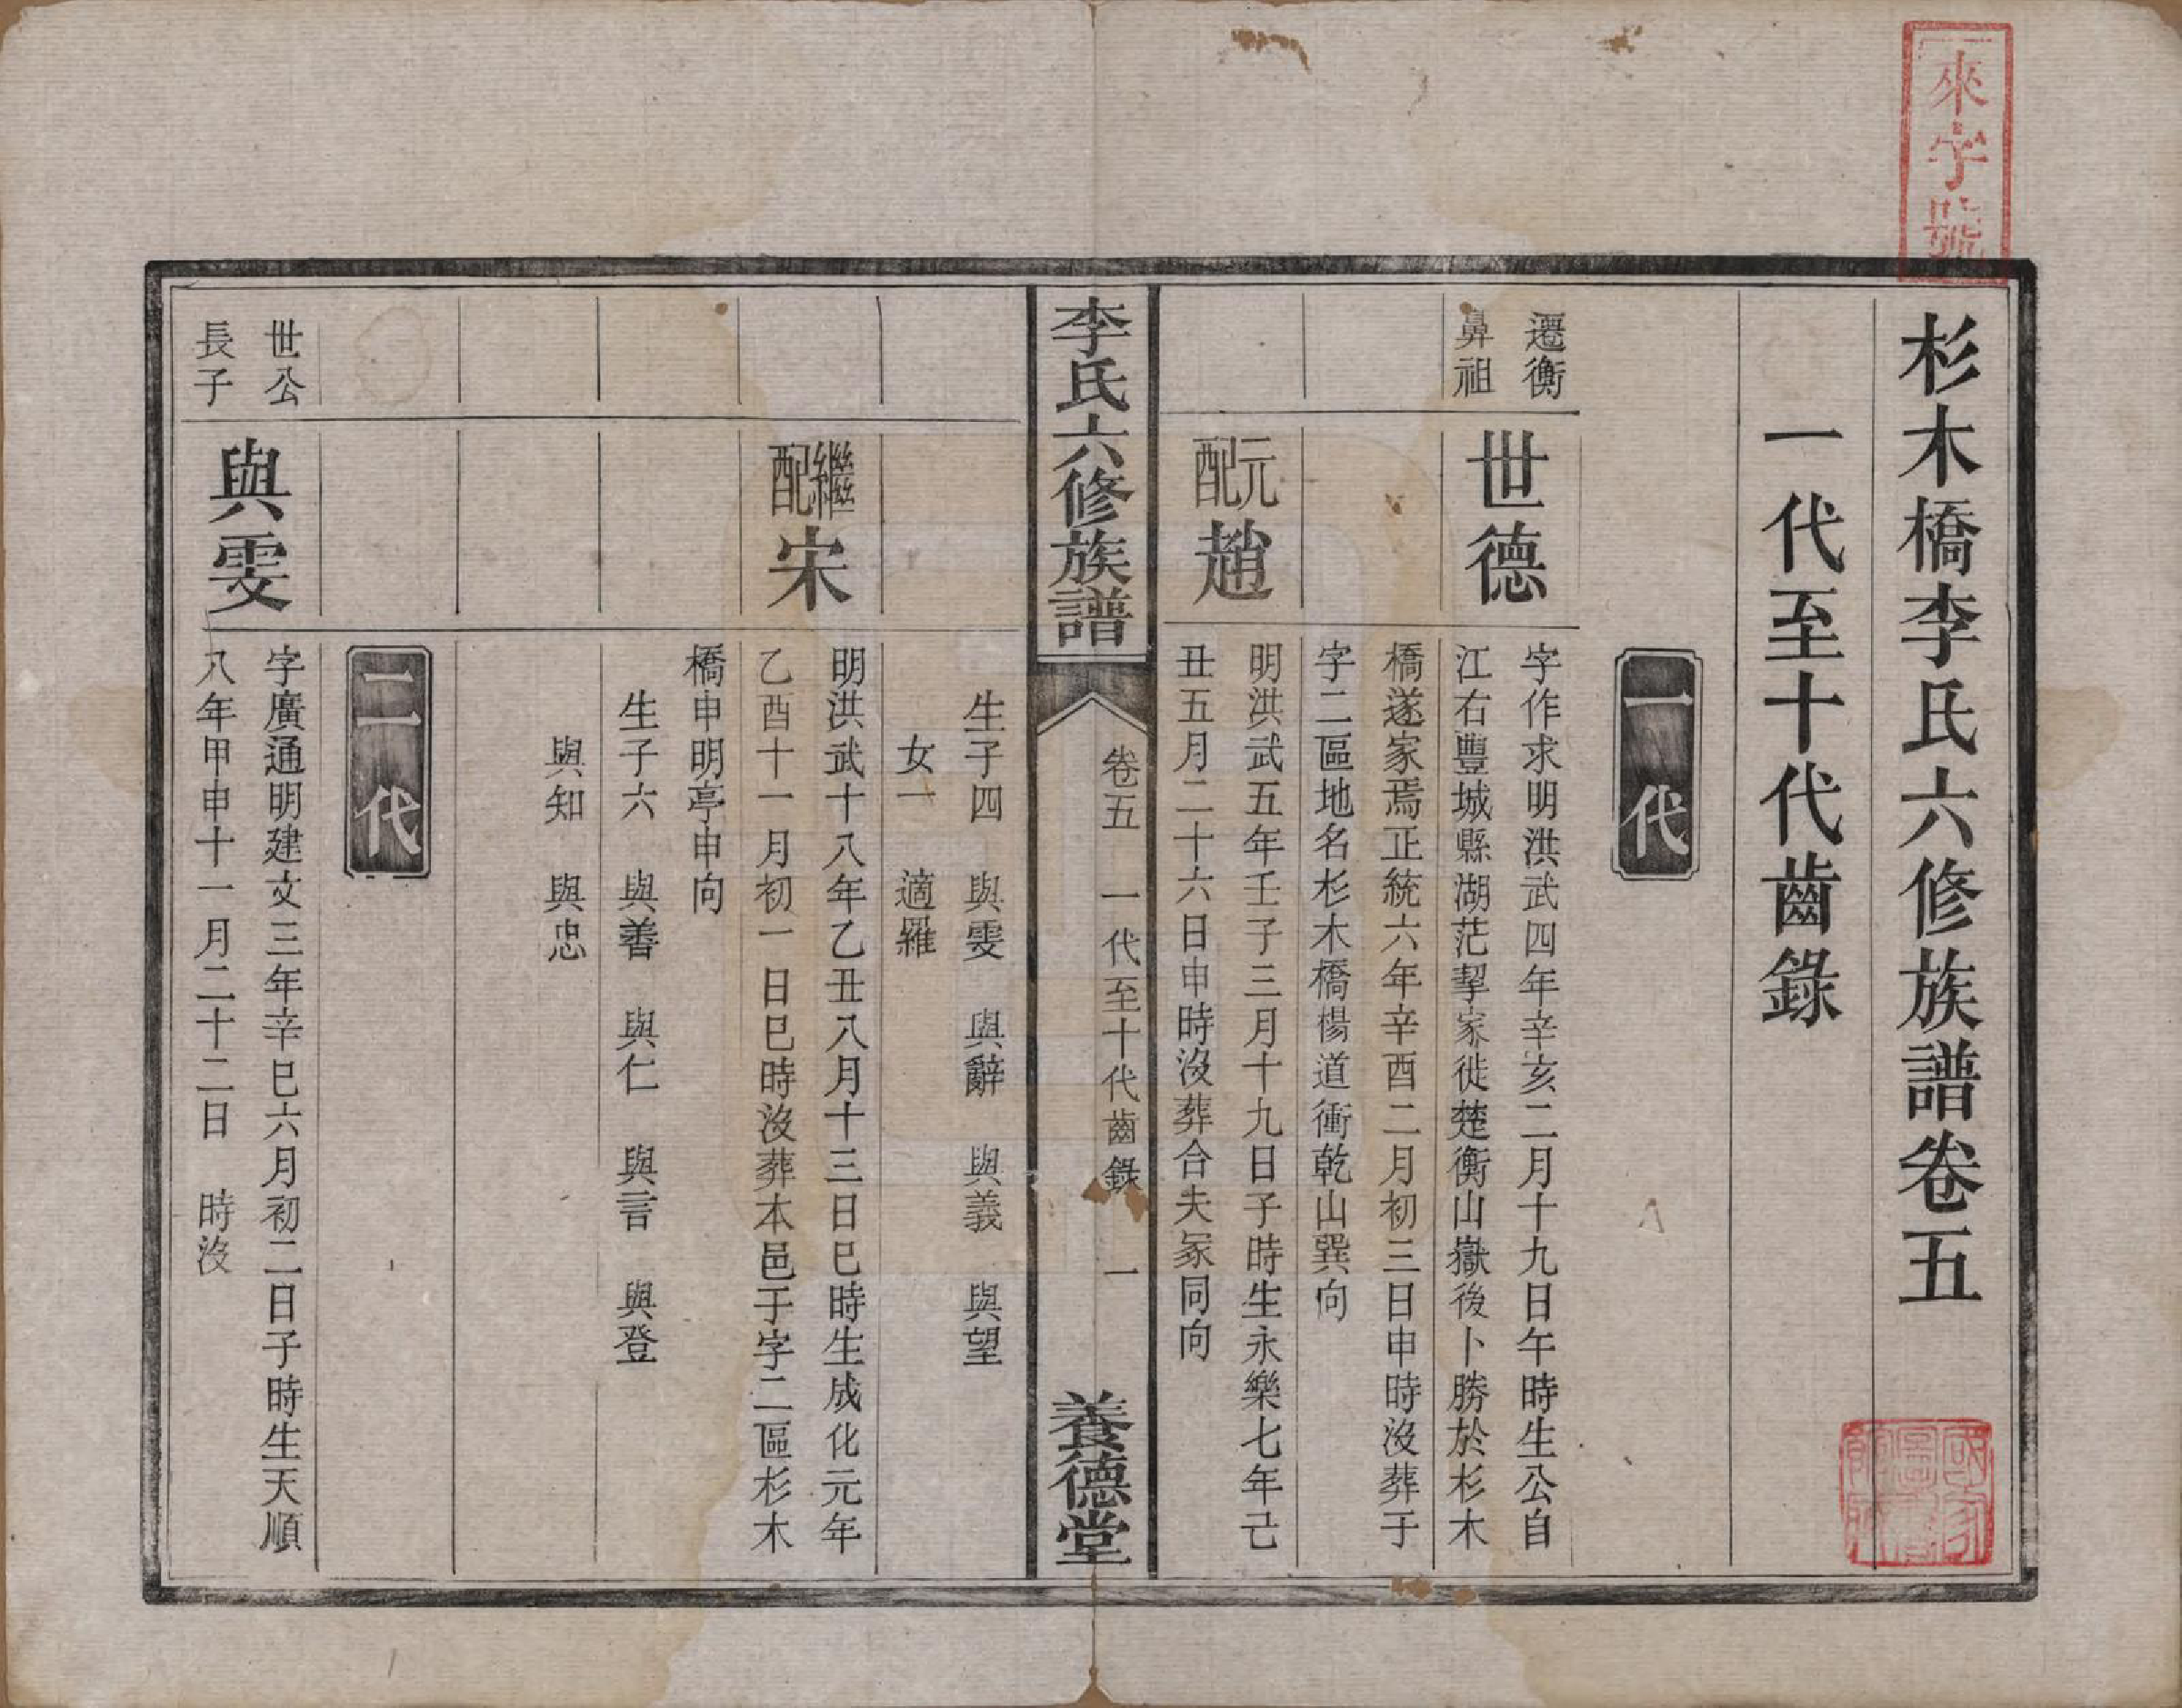 來字號
杉木橋李氏六修族譜卷五
一代至十代齒錄
一代
遷衡
鼻祖
世德
字作求明洪武四年辛亥二月十九日午時生公自
江右豐城縣湖茫挈家徙楚衡山嶽後卜勝於杉木
橋遂家焉正統六年辛酉二月初三日申時沒葬于
字二區地名杉木橋楊道衝乾山巽向
元配
趙
明洪武五年壬子三月十九日子時生永樂七年己
丑五月二十六日申時沒葬合夫冢同向
李氏六修族譜
卷五 一代至十代齒錄 一
養德堂
生子四 與雯 與辭 與義 與望
女一 適羅
繼配
宋
明洪武十八年乙丑八月十三日巳時生成化元年
乙酉十一月初一日巳時沒葬本邑于字二區杉木
橋申明亭申向
生子六 與善 與仁 與言 與登
與知 與忠
二代
世公
長子
與雯
字廣通明建文三年辛巳六月初二日子時生天順
八年甲申十一月二十二日 時沒